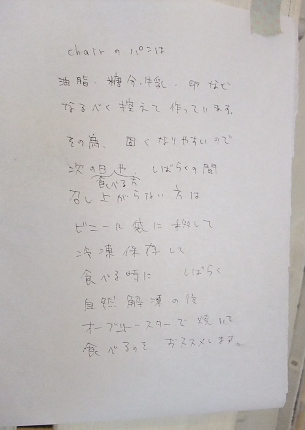 chairのパンは
油脂・糖分、牛乳・卵など
なるべく控えて作っています。
その為、固くなりやすいので
次の日や しばらくの間
食べる方
召し上がらない方は
ビニール袋に移して
冷凍保存して
食べる時に しばらく
自然解凍の後
オーブントースターで焼いて
食べるのを おススメします。